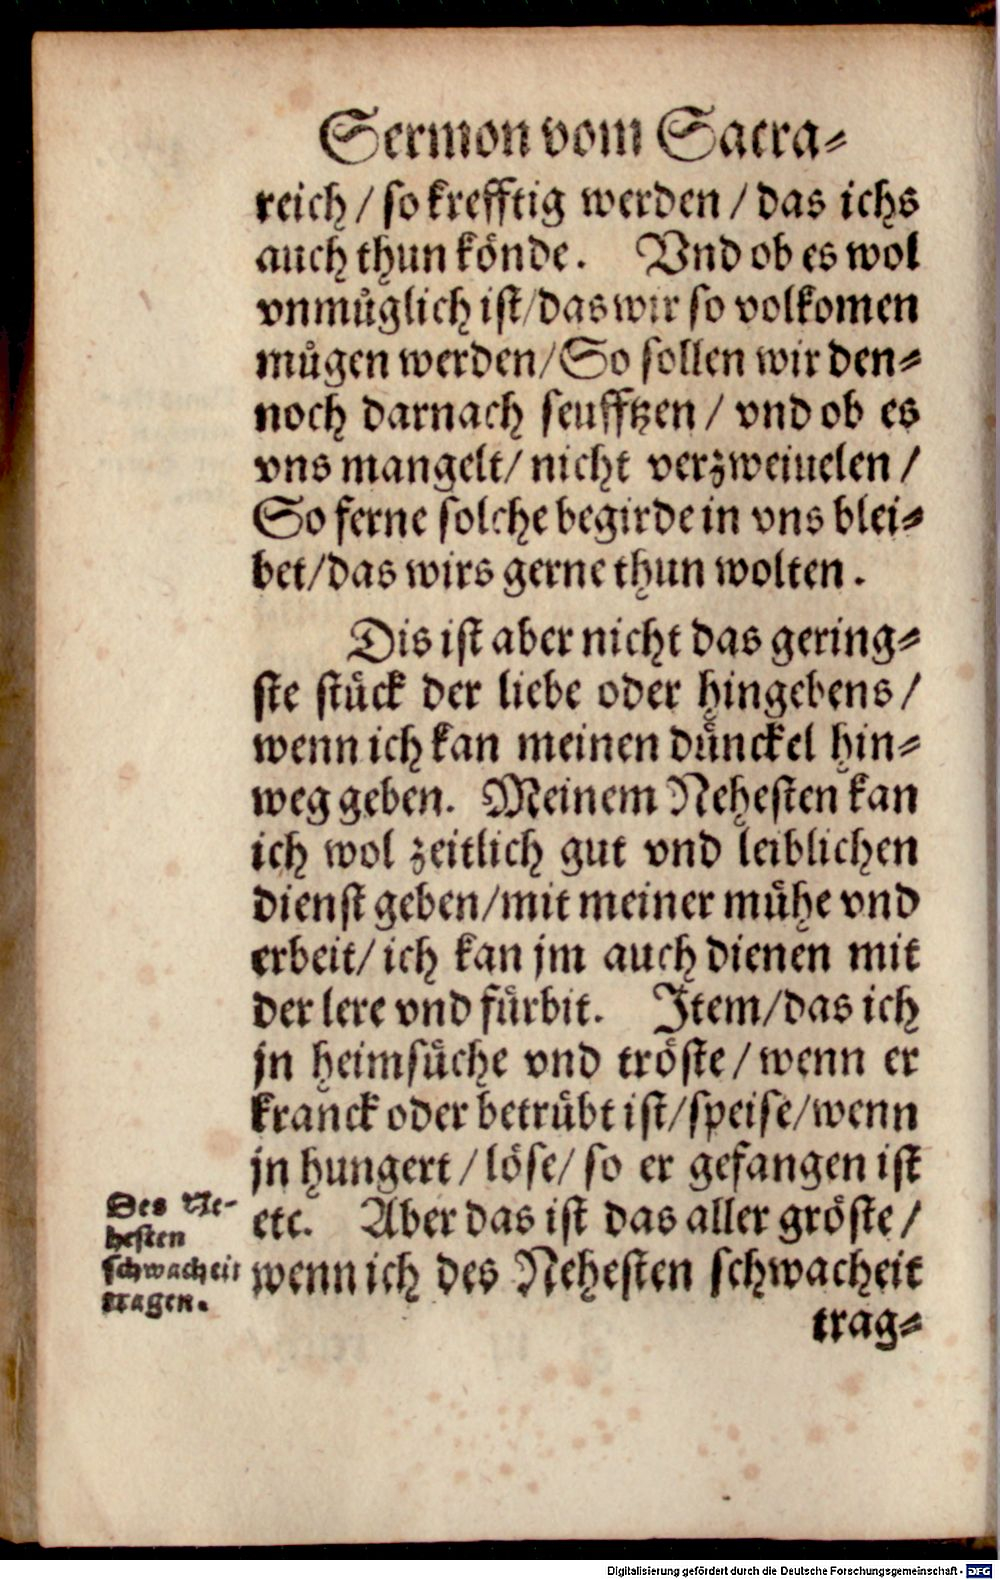 Sermon vom Sacra-
reich / so krefftig werden / das ichs
auch thun könde. Vnd ob es wol
vnmüglich ist / das wir so volkomen
mügen werden / So sollen wir den-
noch darnach seufftzen / vnd ob es
vns mangelt / nicht verzweiuelen /
So ferne solche begirde in vns blei-
bet / das wirs gerne thun wolten.
Dis ist aber nicht das gering-
ste stück der liebe oder hingebens /
wenn ich kan meinen dünckel hin-
weg geben. Meinem Nehesten kan
ich wol zeitlich gut vnd leiblichen
dienst geben / mit meiner mühe vnd
erbeit / ich kan jm auch dienen mit
der lere vnd fürbit. Item / das ich
jn heimsüche vnd tröste / wenn er
kranck oder betrübt ist / speise / wenn
jn hungert / löse / so er gefangen ist
etc. Aber das ist das aller gröste /
wenn ich des Nehesten schwacheit
trag-
Des Ne-
hesten
schwacheit
tragen.
Digitalisierung gefördert durch die Deutsche Forschungsgemeinschaft - DFG